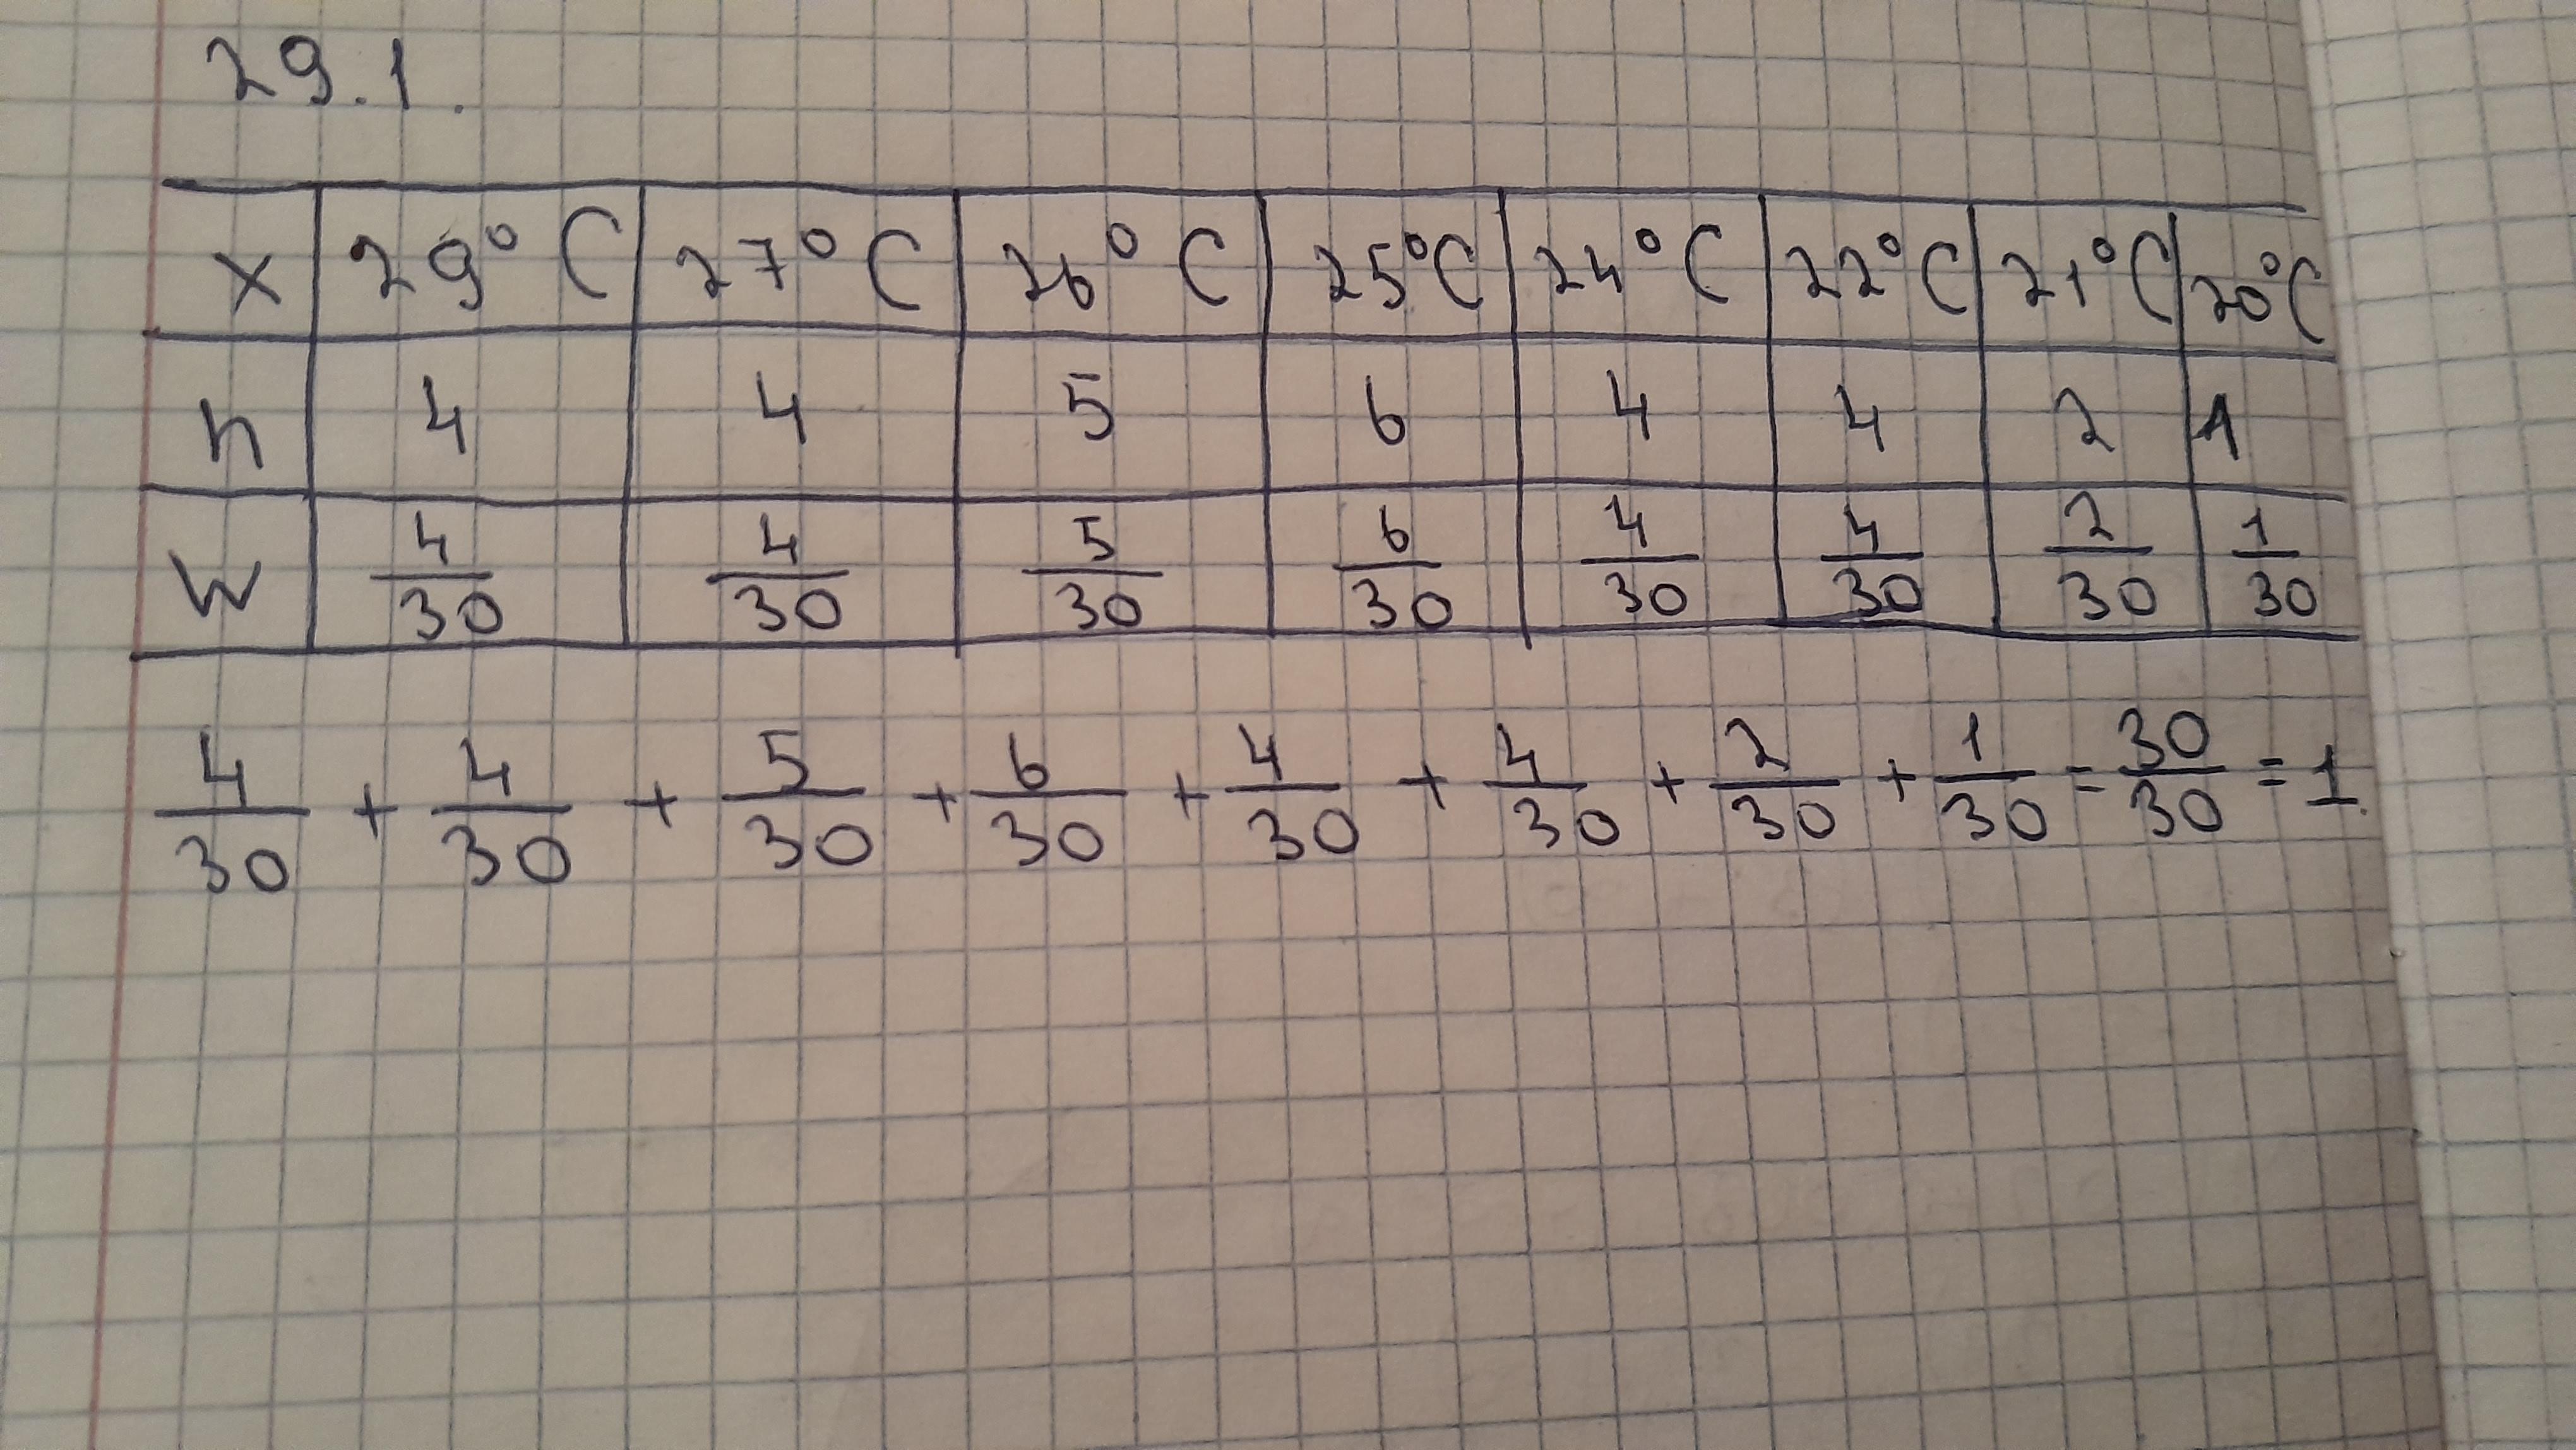 29.1.
x 29°C 27°C 26°C 25°C 24°C 22°C 21°C 20°C
n 4 4 5 6 4 4 2 1
W 4/30 4/30 5/30 6/30 4/30 4/30 2/30 1/30
4/30 + 4/30 + 5/30 + 6/30 + 4/30 + 4/30 + 2/30 + 1/30 = 30/30 = 1.